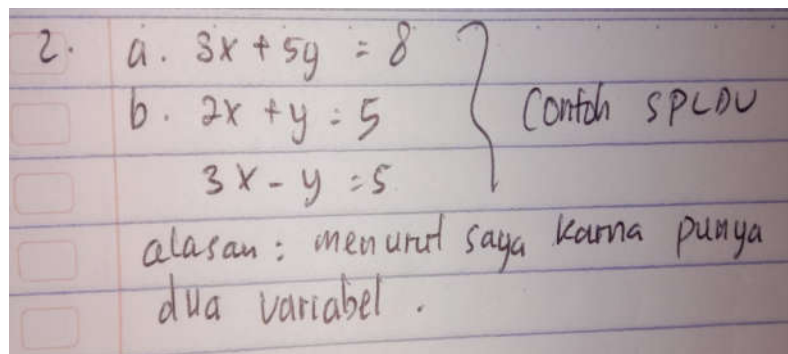 2. a. 3x + 5y = 8
b. 2x + y = 5
3x - y = 5
Contoh SPLDV
alasan : menurut saya karna punya
dua variabel .